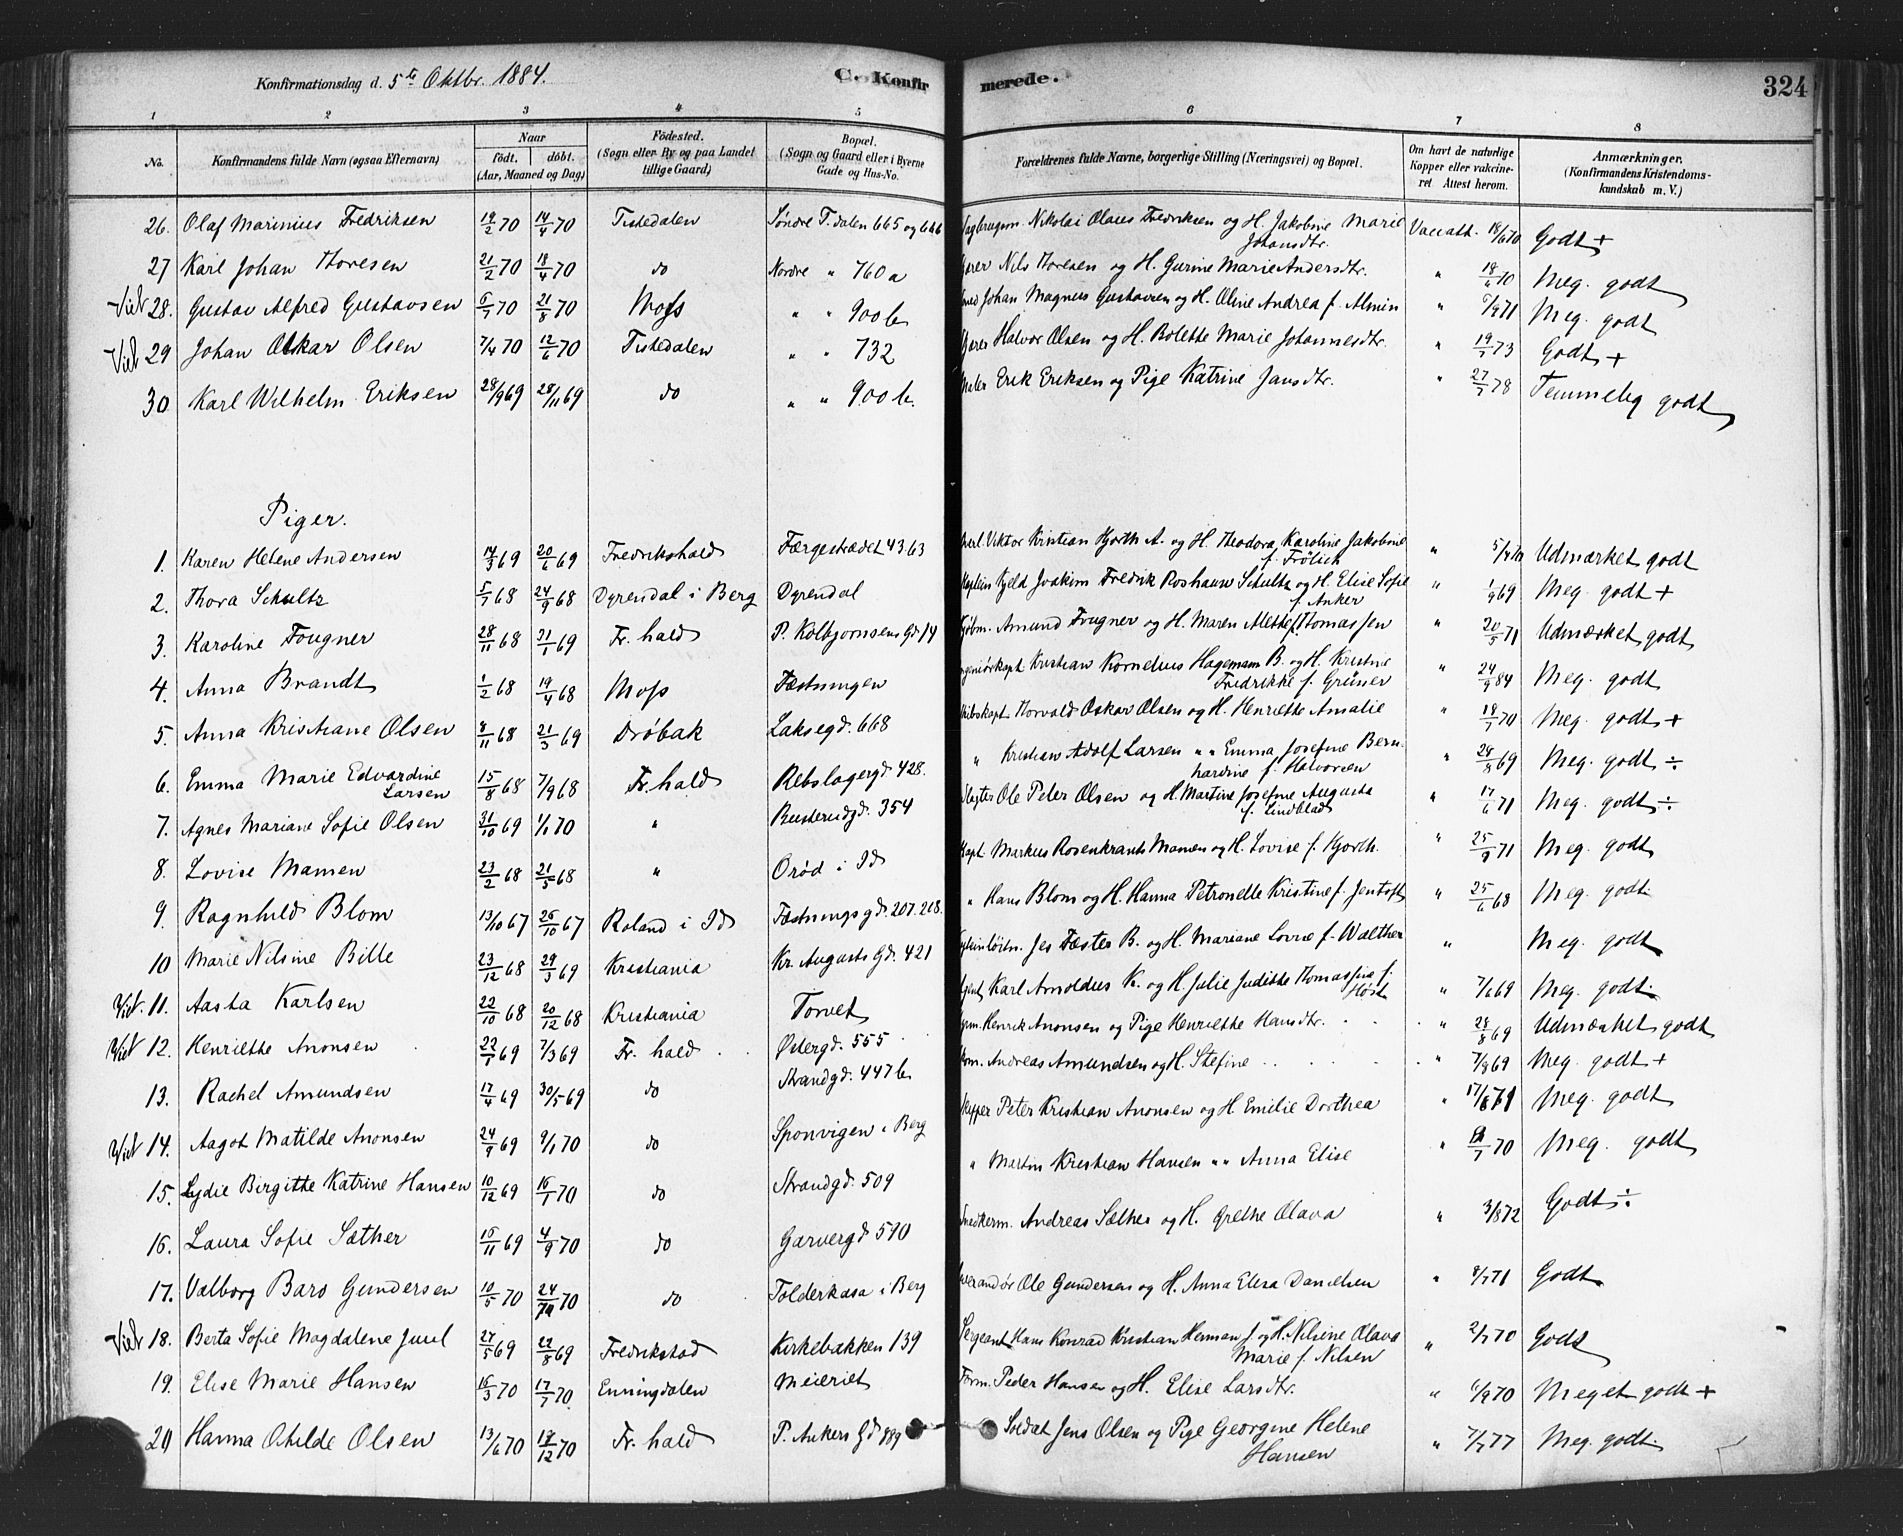 Konfirmationsdag d. 5te Oktbr. 1884.
C. Konfirmerede.
324
1 2 3 4 5 6 7 8
No.
Konfirmandens fulde Navn (ogsaa Efternavn)
Naar
födt. döbt.
(Aar, Maaned og Dag)
Födested.
(Sogn eller By og paa Landet
tillige Gaard)
Bopæl.
(Sogn og Gaard eller i Byerne
Gade og Hus-No.
Forældrenes fulde Navne, borgerlige Stilling (Næringsvei) og Bopæl.
Om havt de naturlige
Kopper eller vakcine-
ret Attest herom.
Anmærkninger.
(Konfirmandens Kristendoms-
kundskab m. V.)
26. Olaf Marinius Fredriksen 19/2 70 14/4 70 Tistedalen Söndre T.dalen 665 og 666 Nikolai Olaus Fredriksen og H. Jakobine Marie Johansdtr. Vaccatt. 18/6 70 Godt +
27 Karl Johan Thoresen 21/2 70 18/4 70 do Nordre " 760 a Nils Thoresen og H. Gurine Marie Andersdtr. " 18/6 70 Meg. godt
Viet 28. Gustav Alfred Gustavsen 6/7 70 21/8 70 Moss " " 900 b Johan Magnus Gustavsen og H. Oline Andrea f. Almin " 6/9 71 Meg. godt
Viet 29 Johan Oskar Olsen 7/4 70 12/6 70 Tistedalen " " 732 Halvor Olsen og H. Bolette Marie Johannesdtr. " 19/7 73 Godt +
30 Karl Wilhelm Eriksen 28/9 69 28/11 69 do " " 900 b. Maler Erik Eriksen og Pige Katrine Jansdtr. " 27/7 78 Temmelig godt
Piger.
1. Karen Helene Andersen 14/3 69 20/6 69 Fredrikshald Færgestrædet 43.63 Viktor Kristian Hjorth A. og H. Theodora Karoline Jakobine f. Frölich " Udmærket godt
2. Thora Schultz 5/7 68 24/9 68 Dyrendal i Berg Dyrendal Kaptein Kjeld Joakim Fredrik Roshauw Schultz og H. Elise Sofie f. Anker " 1/9 69 Meg. godt +
3. Karoline Fougner 28/11 68 31/1 69 Fr. hald P. Kolbjørnsens Gd 14 Kjöbm. Amund Fougner og H. Maren Alette f. Thomassen " 20/5 71 Udmærket godt
4. Anna Brandt 1/2 68 19/4 68 Moss Fæstningen Ingeniörkapt. Kristian Kornelius Hagemann B. og H. Kristine Fredrikke f. Grüner " 24/9 84 Meg. godt
5. Anna Kristiane Olsen 8/11 68 21/3 69 Dröbak Laksegd. 668 Skibskapt Thorvald Oskar Olsen og H. Henriette Amalie " 18/7 70 Meg. godt +
6. Emma Marie Edvardine Larsen 15/8 68 7/9 68 Fr. hald Rebslagergd. 428. " Kristian Adolf Larsen " " Emma Josefine Bernhardine f. Halvorsen " 24/8 69 Meg. godt ÷
7. Agnes Mariane Sofie Olsen 31/10 69 1/1 70 " 354 Slagter Ole Peter Olsen og H. Martine Josefine Augusta f. Lindblad " 17/6 71 Meg. godt ÷
8. Lovise Mamen 23/2 68 21/5 68 " Oröd i Id Kapt. Markus Rosenkrants Mamen og H. Lovise f. Hjorth. " 25/9 71 Meg. godt
9. Ragnhild Blom 13/10 67 26/10 67 Roland i Id Fæstningsgd. 207.208. " Hans Blom og H. Hanna Petronelle Kristine f. Jentoft " 25/6 68 Meg. godt
10 Marie Nilsine Bille 23/12 68 29/3 69 Kristiania Kr. Augusts Gd. 421 Jes Fæster B. og H. Mariane Lovise f. Walther " Meg. godt
Viet. 11. Aasta Karlsen 22/10 68 20/12 68 Kristiania Torvet Agent Karl Arnoldus K. og H. Julie Juditte Thomassine f. Höst " 7/6 69 Meg. godt.
Viet 12. Henriette Anonsen 22/1 69 7/3 69 Fr. hald Østergd. 555 Henrik Anonsen og Pige Henriette Hansdtr. " 28/8 69 Udmærket godt
13. Rachel Amundsen 17/4 69 30/5 69 do Strandgd. 447 b Andreas Amundsen og H. Stefine " 7/8 69 Meg. godt +
Viet 14. Aagot Matilde Anonsen 24/9 69 9/1 70 do Sponvigen i Berg Skipper Peter Kristian Anonsen og H Emilie Dorthea " 17/6 71 Meg. godt
15. Lydie Birgitte Katrine Hansen 10/12 69 16/1 70 do Strandgd. 509 " Martin Kristian Hansen " " Anna Elise " Meg. godt
16. Laura Sofie Sæther 15/11 69 4/9 70 do Garvergd 590 Snedkerm. Andreas Sæther og H. Grethe Olava " 3/8 72 Godt ÷
17. Valborg Baro Gundersen 10/5 70 24/ 70 do Tolderkasa i Berg Ole Gundersen og H. Anna Elisa Danielsen " Godt
Viet 18. Berta Sofie Magdalene Juul 27/5 69 22/8 69 Fredrikstad Kirkebakken 139 Sergeant Hans Konrad Kristian Herman J. og H. Nilsine Olava Marie f. Nilsen " 2/7 70 Godt
19. Elise Marie Hansen 16/3 70 17/7 70 Enningdalen Meieriet Form. Peder Hansen og H. Elise Larsdtr. " 6/9 70 Meget godt +
20 Hanna Otilde Olsen 13/6 70 18/12 70 Fr. hald P. Ankers Gd 889 Soldat Jens Olsen og Pige Georgine Helene Hansen " 7/7 77 Meg. godt.